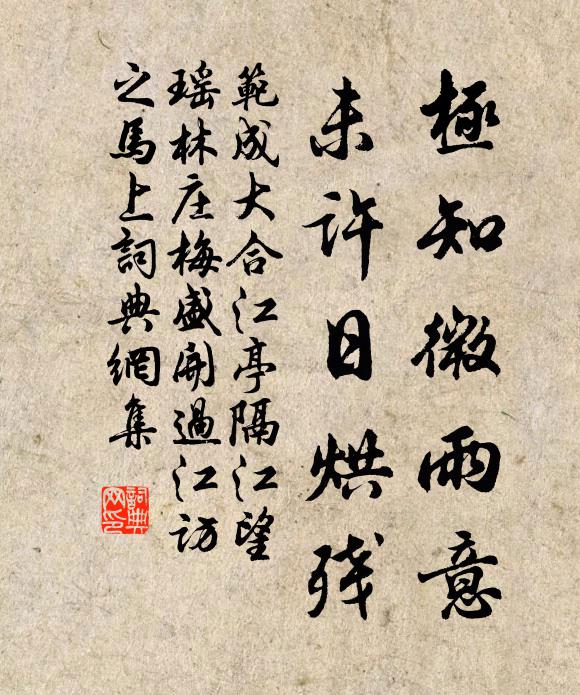 極知微雨意
未許日烘残
範成大合江亭隔江望
瑶林庄梅盛開過江訪
之馬上詞典網集
詞典
网印